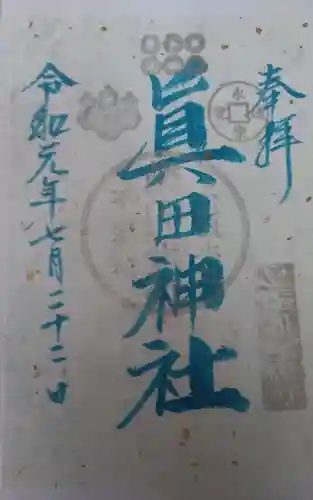 奉拝
眞田神社
令和元年七月二十二日